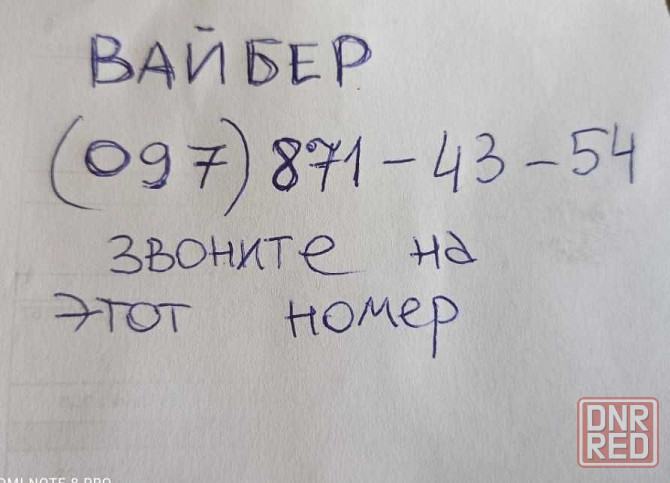 ВАЙБЕР
(097) 871-43-54
звоните на
этот номер
DNR
RED